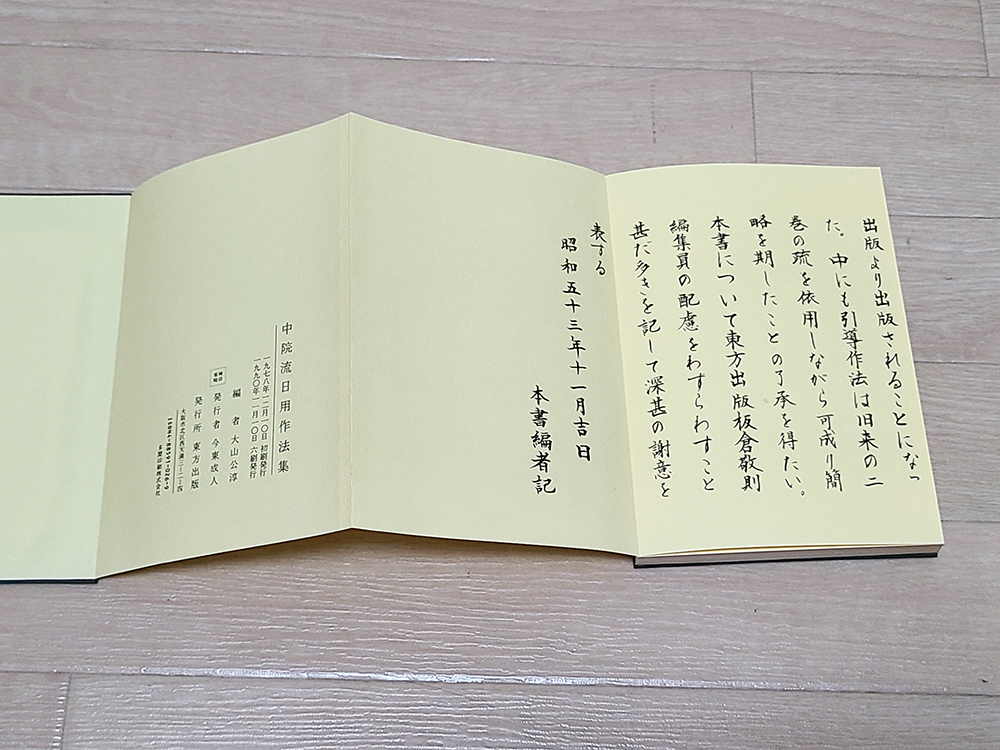 出版より出版されることになっ
た。中にも引導作法は旧来の二
巻の疏を依用しながら可成り簡
略を期したことの了承を得たい。
本書について東方出版板倉敬則
編集員の配慮をわずらわすこと
甚だ多きを記して深甚の謝意を
表する
昭和五十三年十一月吉日
本書編者記
中院流日用作法集
一九七八年一二月一〇日 初刷発行
一九九〇年一一月一〇日 六刷発行
編者 大山公淳
発行者 今東成人
検印省略
発行所 東方出版
大阪市北区西天満三-二-四
印刷株式会社